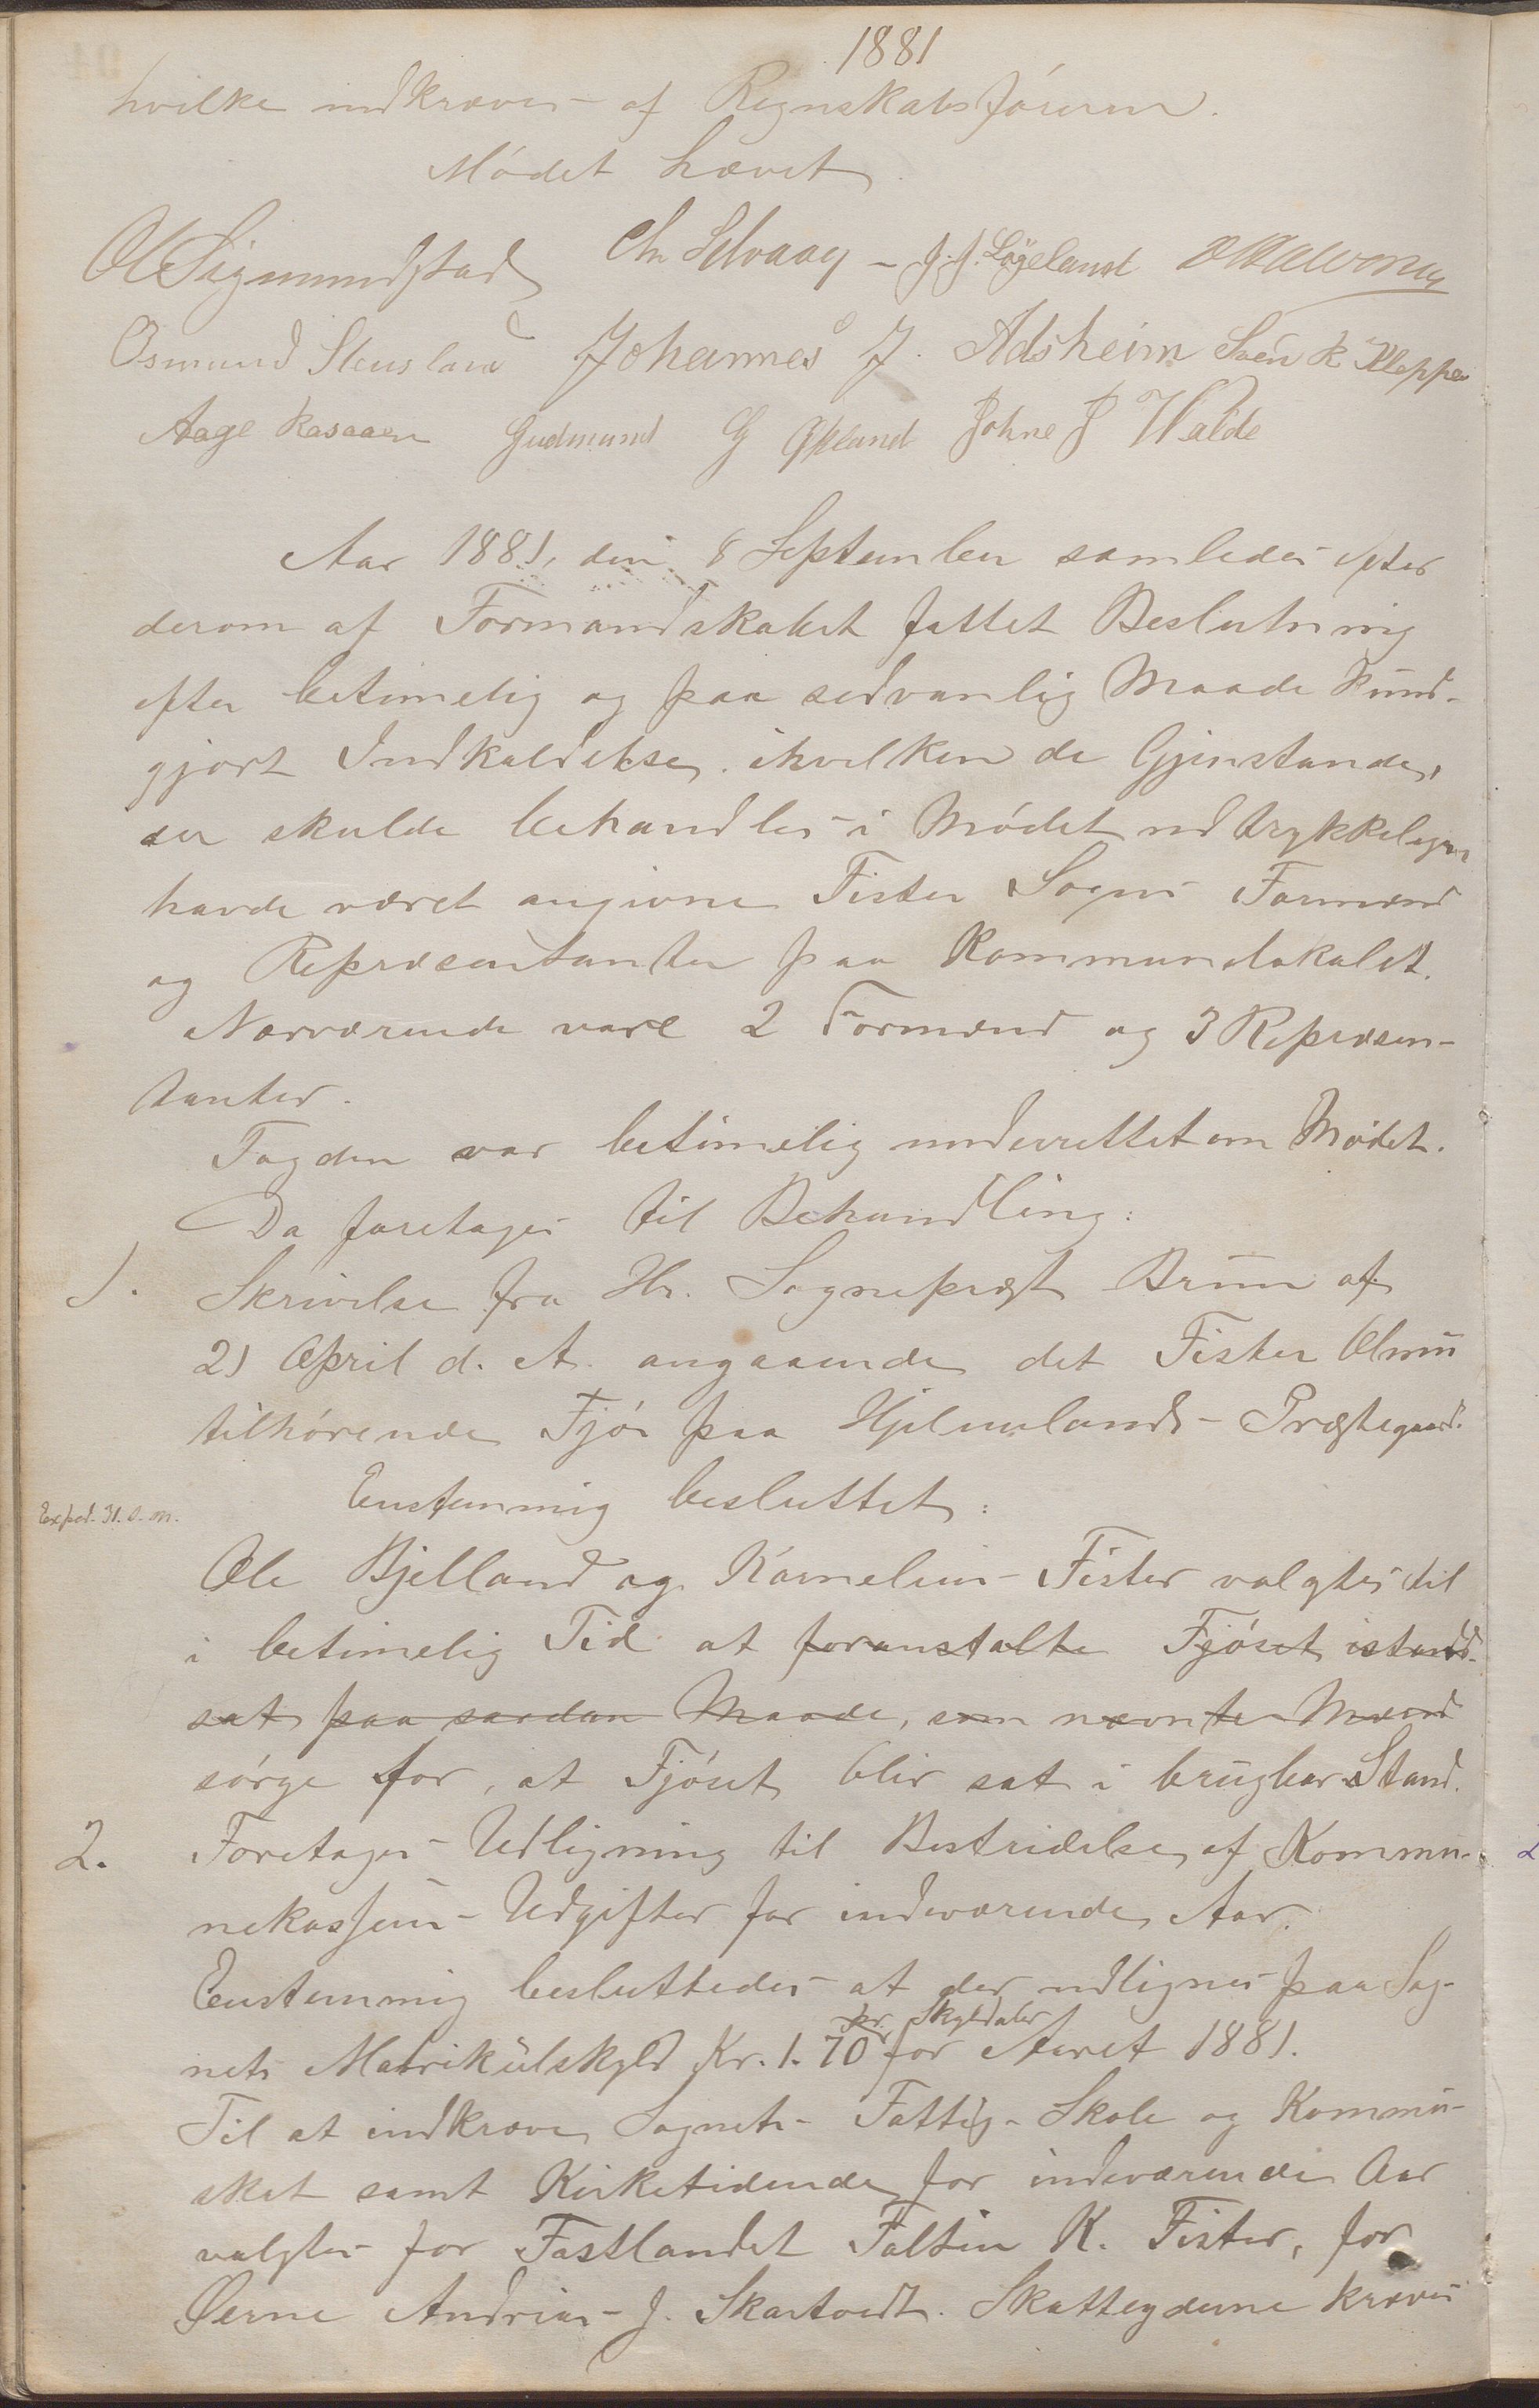 1881
hvilke indkræves af Regnskabsføreren.
Mödet hævet
Ol Sigmundstad Chr Selvaag - J. J. Løgeland
Osmund Steusland Johannes J. Adsheim Svén R Kleppa
Aage Rasaaen Gudmund G Østland Johne J Walde
Aar 1881, den 8 September samledes efter
derom af Formandskabet fattet Beslutning
efter betimelig og paa sedvanlig Maade kund-
gjort Indkaldelse, ihvilken de Gjenstande,
der skulde behandles i Mødet udtrykkeligen
havde været angivne Fister Sogns Formænd
og Repræsentanter paa Kommunelokalet.
Nærværende vare 2 Formænd og 3 Repræsen-
tanter.
Fogden var betimelig underrettet om Mödet.
Da foretages til Behandling:
1. Skrivelse fra Hr. Sogneprest Brun af
21 April d. A. angaaende det Fister Almu
tilhörende Fjös paa Hjelmelands Prestegaard.
Enstemmig besluttet:
Exped. 31. D. M.
Ole Bjelland og Kornelius Fister valgtes til
i betimelig Tid at foranstalte Fjöset istand-
sat paa saadan Maade, som nævnte Mænd
sörge for, at Fjöset blir sat i brugbar Stand.
2. Foretages Udligning til Bestridelse af Kommu-
nekassens Udgifter for indeværende Aar.
Enstemmig besluttedes at der udlignes paa Sog-
pr. Skylddaler
nets Matrikulskyld Kr. 1. 70 for Aaret 1881.
Til at indkræve Sognets Fattig- Skole og Kommu-
skat samt Kirketidende for indeværende Aar
valgtes for Fastlandet Faltin K. Fister, for
Øerne Andreas J. Skartvedt. Skatteyderne kræves